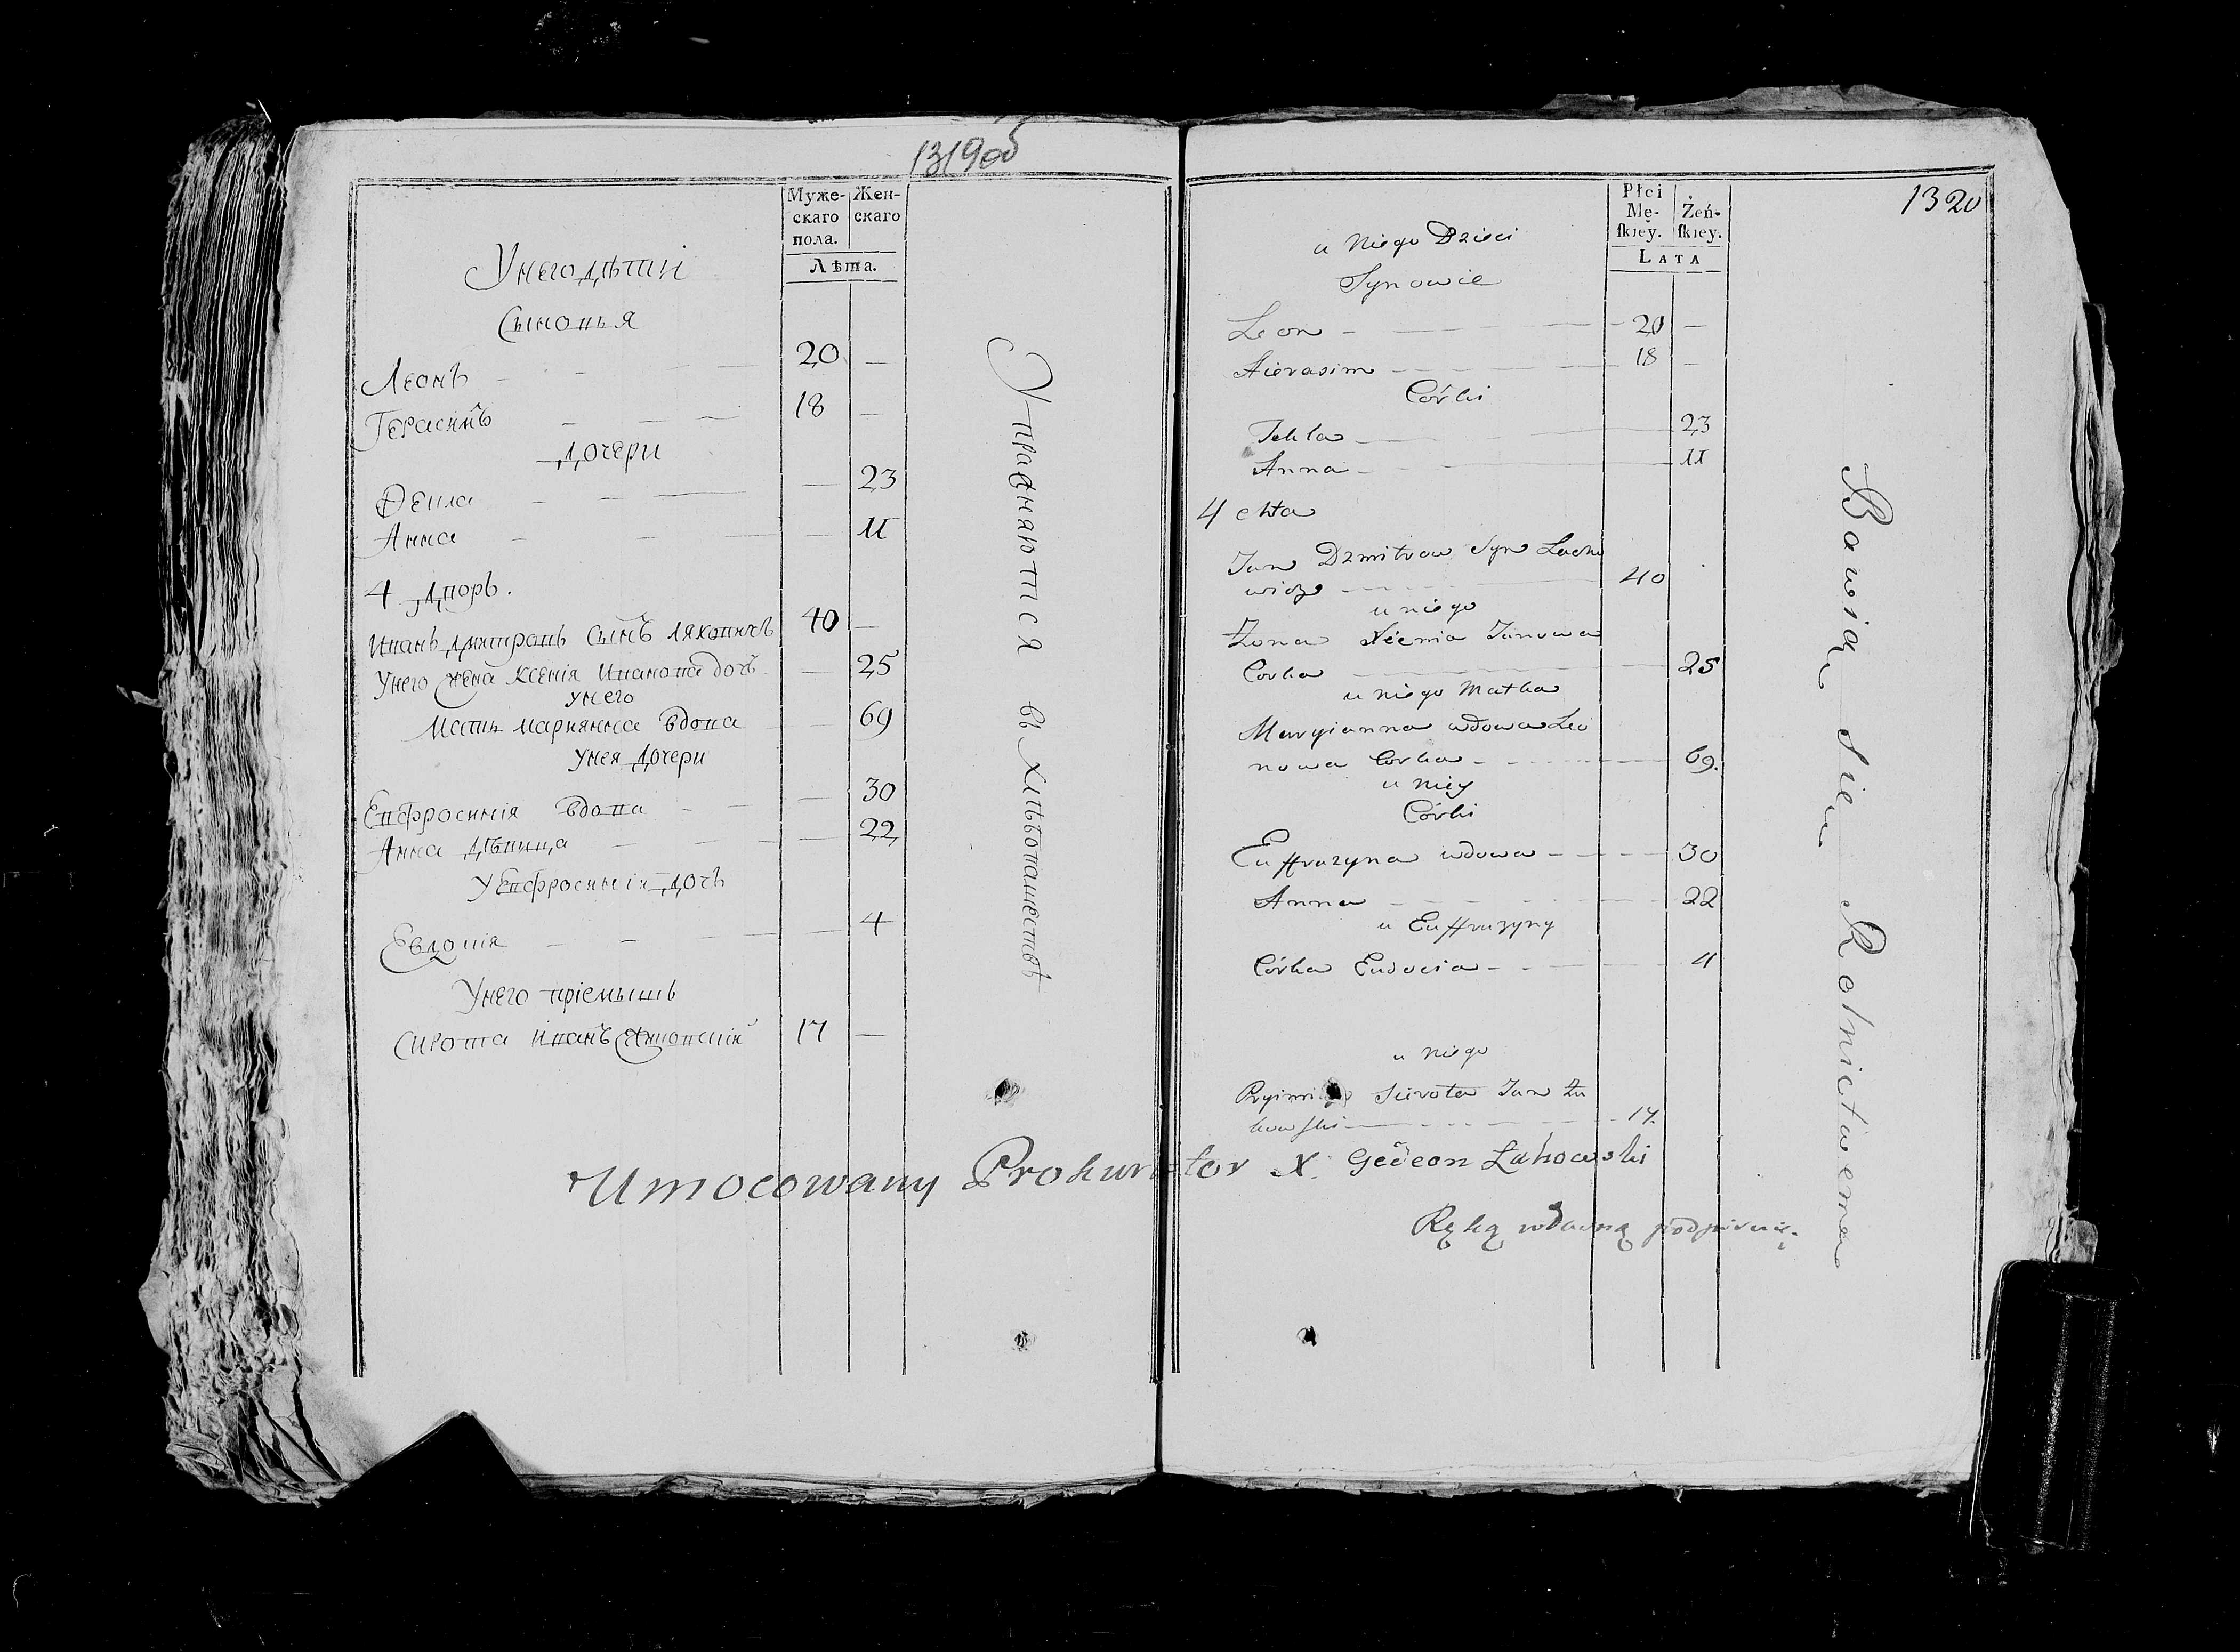 1319об
Муже-
скаго
пола.
Жен-
скаго
Лѣта.
У него дѣти
Сыновья
Леонъ 20 —
Герасимъ 18 —
Дочери
Ѳекла — 23
Анна — 11
4 дворъ.
Иванъ дмитровъ сынъ ляховичъ 40 —
У него жена Ксенія Иванова дочь — 25
У него
Мать марианна вдова 69
У нея дочери
Евфросинія вдова — 30
Анна дѣвица — 22
У Евфросиніи дочь
Евдокія — 4
У него пріемышъ
Сирота Иванъ 17 —
Упражняются въ хлѣбопашествѣ
1320
Płci
Mę-
skiey.
Żeń-
skiey.
LATA
u Niego Dzieci
Synowie
Leon 20 —
Hierasim 18 —
Córki
Tekla 23
Anna 11
4 chta
Jan Dzmitrow Syn Lacho
wicz 40
u niego
Żona Xienia Janowa
Corka 25
u niego Matka
Maryianna wdowa Leo
nowa Corka 69.
u niey
Córki
Euffrozyna wdowa 30
Anna 22
u Euffrozyny
Córka Eudocia 4
u niego
Sierota Jan Żu
kowski 17.
Bawią się Rolnictwem
Umocowany Prokurator X. Gedeon Łakowski
Ręką własną podpisuię.